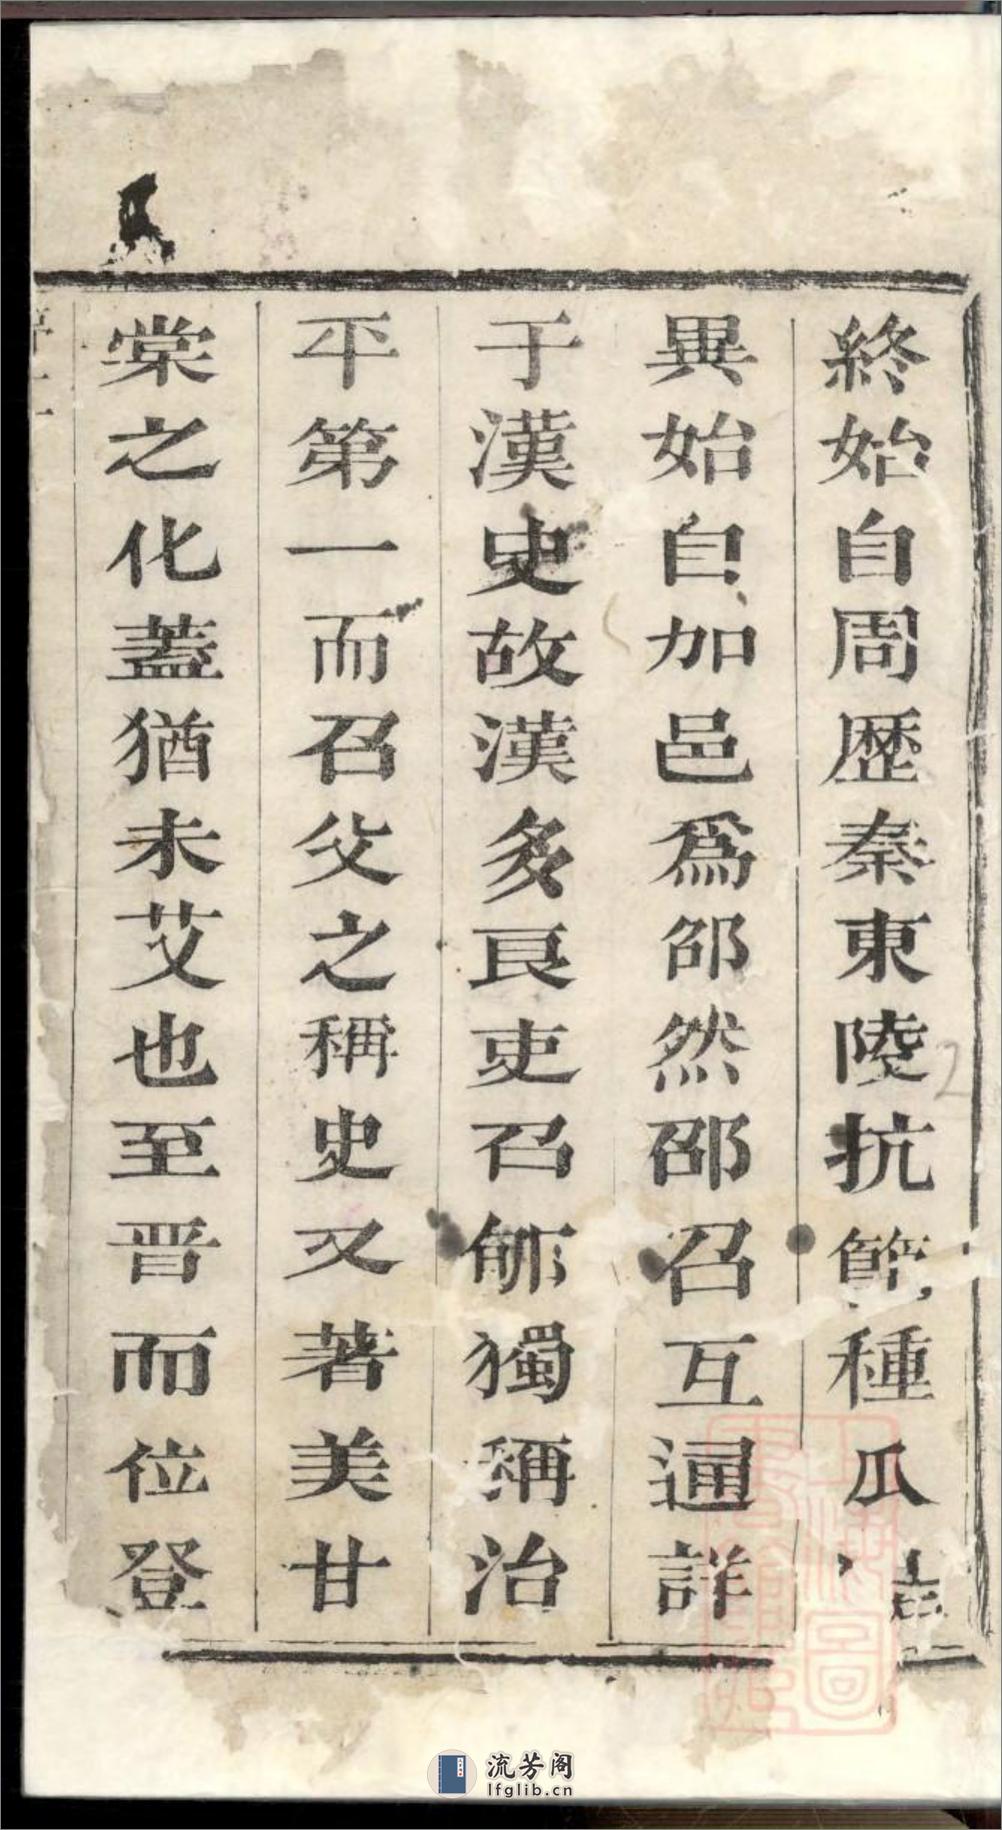 終始自周歴秦東陵抗節種瓜
異始自加邑爲邵然邵召互通詳
于漢史故漢多良吏召郇獨稱治
平第一而召父之稱史又著美甘
棠之化蓋猶未艾也至晋而位登
流芳阁
lfglib.cn
2